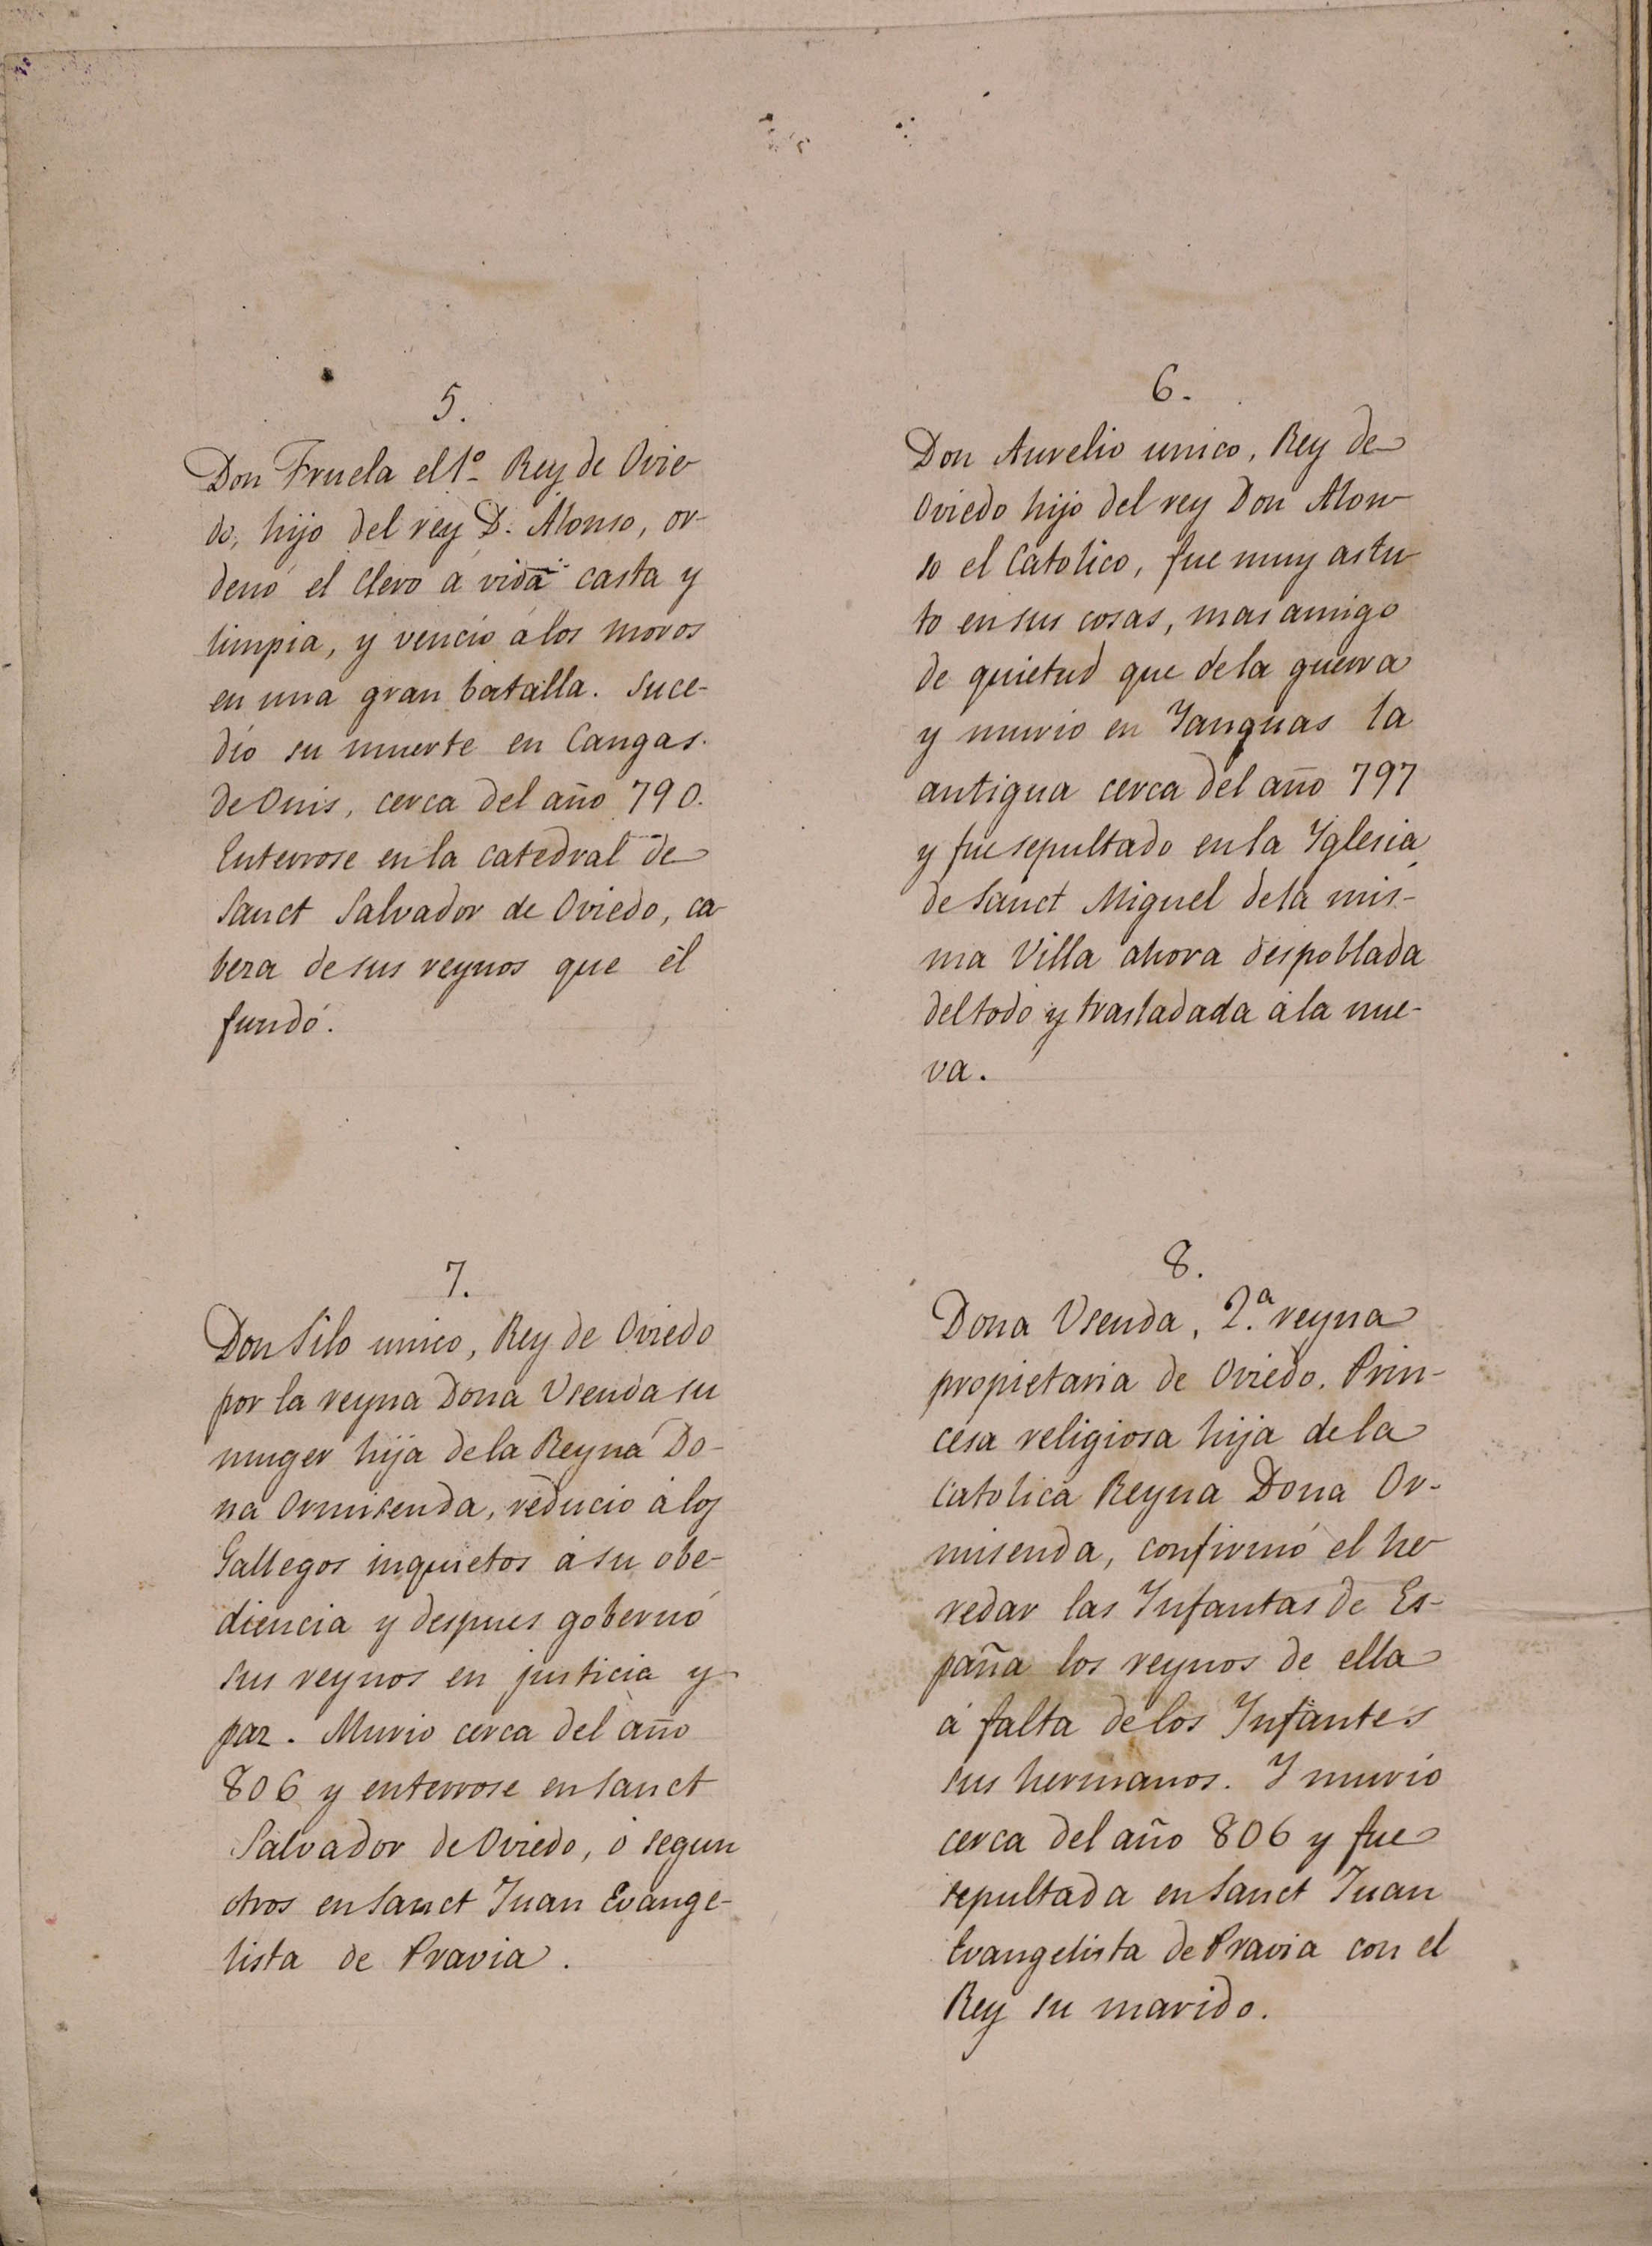 5.
Don Fruela el 1º Rey de Ovie-
do, hijo del rey D. Alonso, or-
denó el clero á vida casta y
limpia, y venció á los moros
en una gran batalla. Suce-
dio su muerte en Cangas.
de Onis, cerca del año 790.
Enterrose en la catedral de
Sanct Salvador de Oviedo, ca-
beza de sus reynos que él
fundó.
6.
Don Aurelio unico, Rey de
Oviedo hijo del rey Don Alon-
so el Catolico, fue muy astu-
to en sus cosas, mas amigo
de quietud que de la guerra
y murio en Yanguas la
antigua cerca del año 797
y fue sepultado en la Yglesia
de Sanct Miguel de la mis-
ma Villa ahora despoblada
del todo y trasladada á la nue-
va.
7.
Don Silo unico, Rey de Oviedo
por la reyna Dona Usenda su
muger hija de la Reyna Do-
na Ormisenda, reducio á los
Gallegos inquietos á su obe-
diencia y despues gobernó
sus reynos en justicia y
paz. Murio cerca del año
806 y enterrose en Sanct
Salvador de Oviedo, ó segun
otros en Sanct Juan Evange-
lista de Pravia.
8.
Dona Usenda, 2.ª reyna
propietaria de Oviedo. Prin-
cesa religiosa hija de la
Catolica Reyna Dona Or-
misenda, confirmó el he-
redar las Infantas de Es-
paña los reynos de ella
á falta de los Infantes
sus hermanos. Y murió
cerca del año 806 y fue
sepultada en Sanct Juan
Evangelista de Pravia con el
Rey su marido.